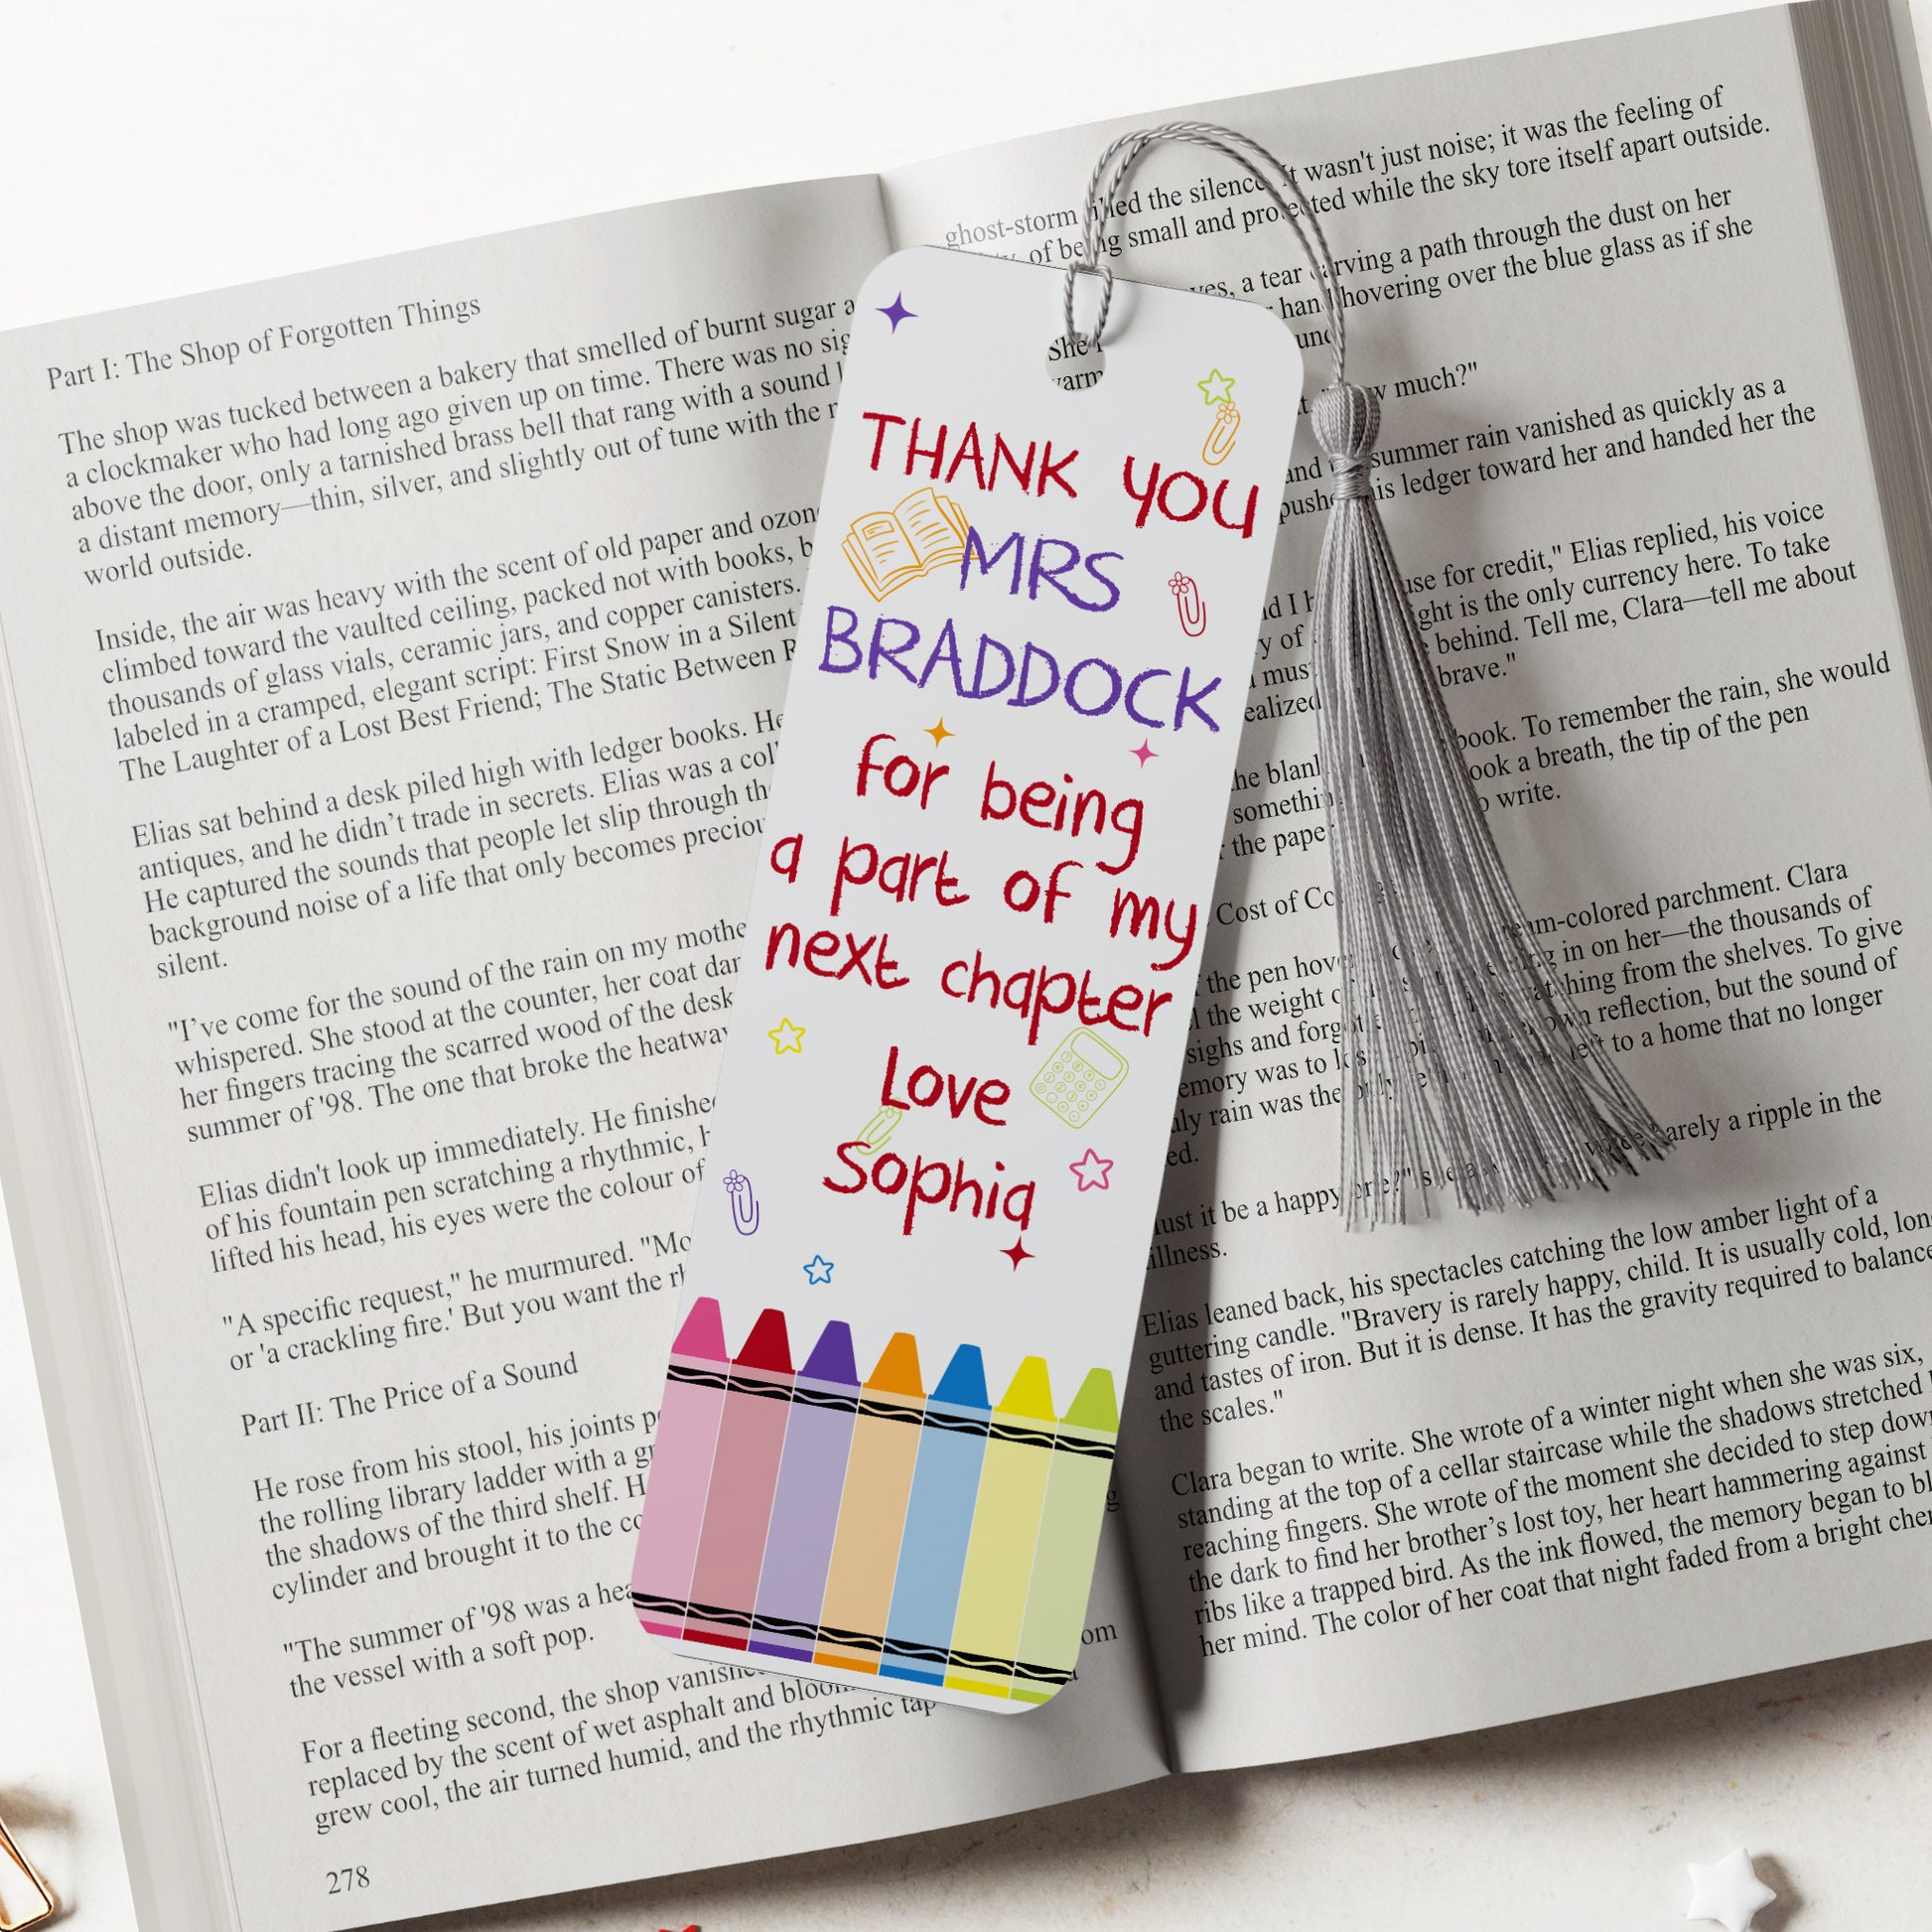 Part I: The Shop of Forgotten Things
The shop was tucked between a bakery that smelled of burnt sugar a
a clockmaker who had long ago given up on time. There was no sig
above the door, only a tarnished brass bell that rang with a sound
a distant memory—thin, silver, and slightly out of tune with the
world outside.
Inside, the air was heavy with the scent of old paper and ozon
climbed toward the vaulted ceiling, packed not with books, b
thousands of glass vials, ceramic jars, and copper canisters.
labeled in a cramped, elegant script: First Snow in a Silent
The Laughter of a Lost Best Friend; The Static Between R
Elias sat behind a desk piled high with ledger books. He
antiques, and he didn’t trade in secrets. Elias was a col
He captured the sounds that people let slip through the
background noise of a life that only becomes preciou
silent.
"I’ve come for the sound of the rain on my mothe
whispered. She stood at the counter, her coat dar
her fingers tracing the scarred wood of the desk
summer of '98. The one that broke the heatwav
Elias didn't look up immediately. He finishe
of his fountain pen scratching a rhythmic, h
lifted his head, his eyes were the colour of
"A specific request," he murmured. "Mo
or 'a crackling fire.' But you want the rh
Part II: The Price of a Sound
He rose from his stool, his joints p
the rolling library ladder with a gr
the shadows of the third shelf. H
cylinder and brought it to the co
"The summer of '98 was a hea
the vessel with a soft pop.
For a fleeting second, the shop vanishe
replaced by the scent of wet asphalt and bloom
grew cool, the air turned humid, and the rhythmic tap
278
THANK YOU
MRS
BRADDOCK
for being
a part of my
next chapter
Love
Sophia
ghost-storm filled the silence. It wasn't just noise; it was the feeling of
of being small and protected while the sky tore itself apart outside.
a tear carving a path through the dust on her
hand hovering over the blue glass as if she
She
warm
much?"
and summer rain vanished as quickly as a
pushed his ledger toward her and handed her the
use for credit," Elias replied, his voice
ght is the only currency here. To take
behind. Tell me, Clara—tell me about
must brave."
ealized
book. To remember the rain, she would
he blank ook a breath, the tip of the pen
somethin o write.
the pape
Cost of Co
am-colored parchment. Clara
the pen hov in on her—the thousands of
the weight o watching from the shelves. To give
sighs and forgot own reflection, but the sound of
emory was to los left to a home that no longer
uly rain was the only
ed.
barely a ripple in the
ust it be a happy one?" she
illness.
Elias leaned back, his spectacles catching the low amber light of a
guttering candle. "Bravery is rarely happy, child. It is usually cold, lon
and tastes of iron. But it is dense. It has the gravity required to balance
the scales."
Clara began to write. She wrote of a winter night when she was six,
standing at the top of a cellar staircase while the shadows stretched
reaching fingers. She wrote of the moment she decided to step down
the dark to find her brother’s lost toy, her heart hammering against
ribs like a trapped bird. As the ink flowed, the memory began to bl
her mind. The color of her coat that night faded from a bright cher